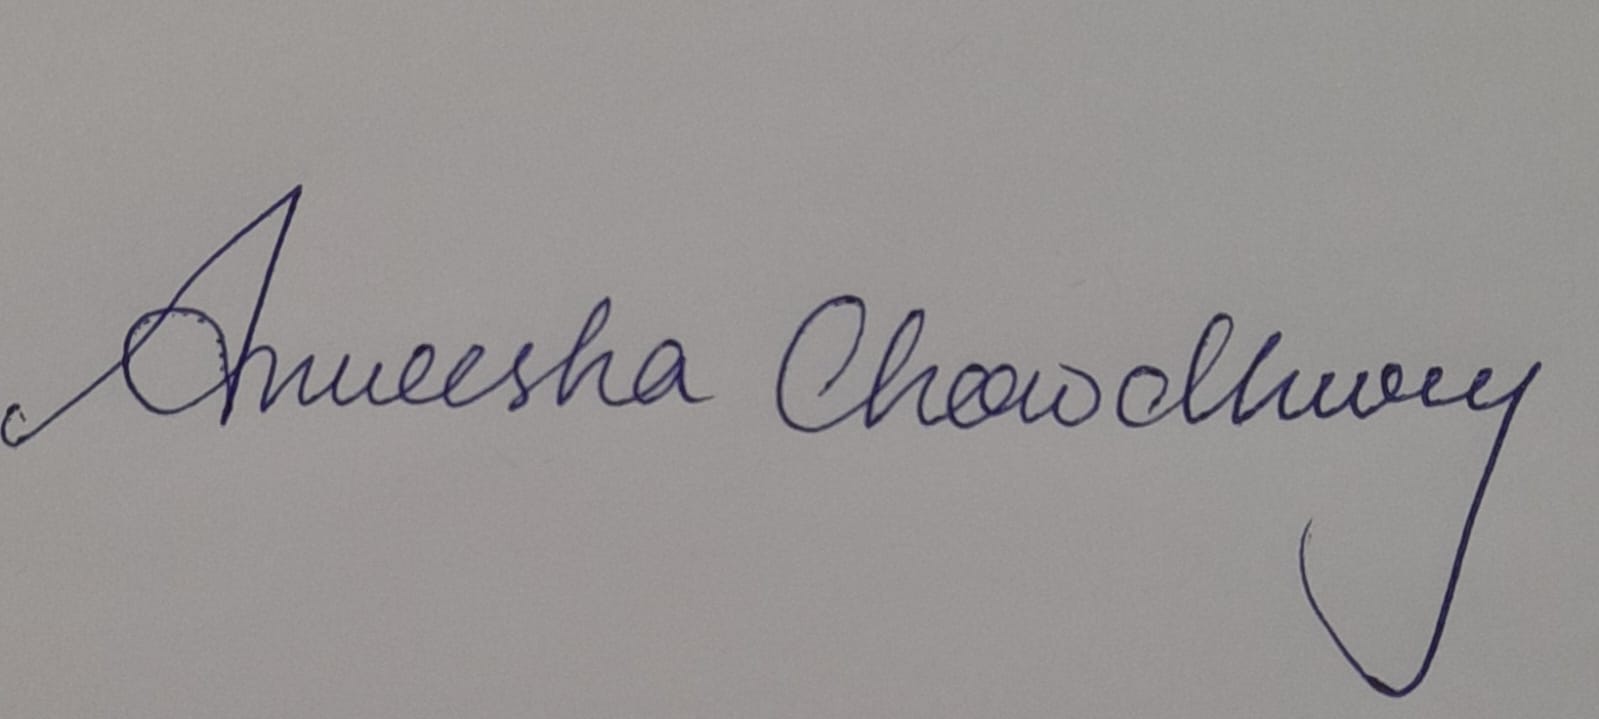 Anueesha Chowdhury